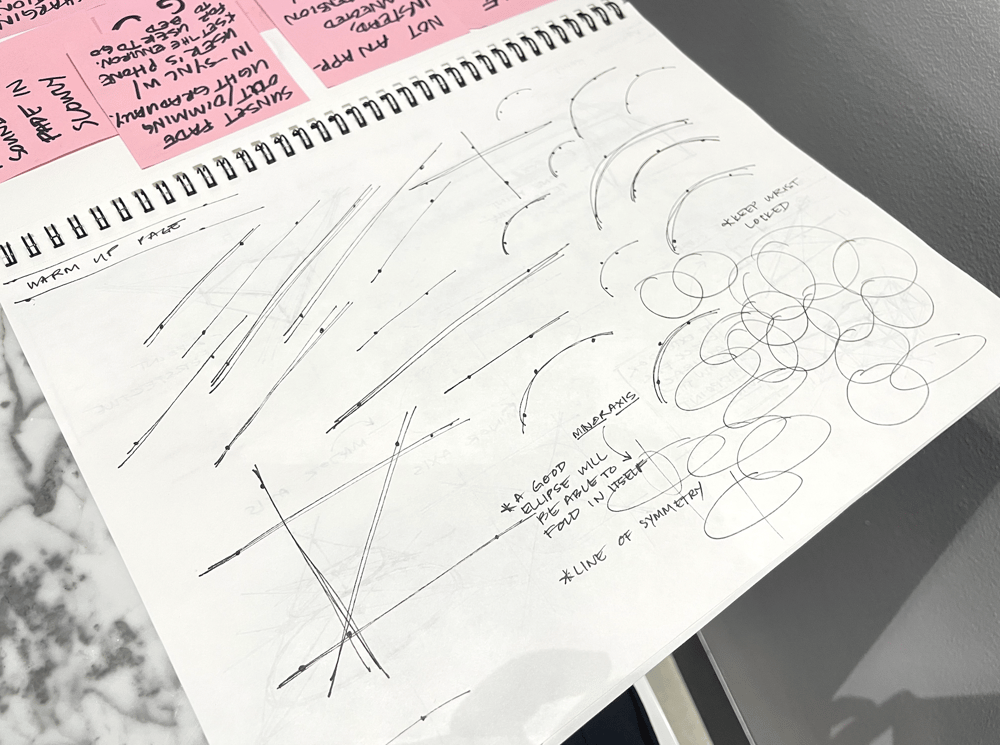 SLOWLY
FADE IN
SUNSET FADE
OUT/DIMMING
LIGHT GRADUALLY.
IN-SYNC W/
USER'S PHONE
SET THE ENVIRON.
FOR USER TO GO
TO BED
NOT AN APP-
INSTEAD,
WARM UP PAGE
*KEEP WRIST
LOCKED
MINOR AXIS
*A GOOD
ELLIPSE WILL
BE ABLE TO
FOLD IN ITSELF
*LINE OF SYMMETRY